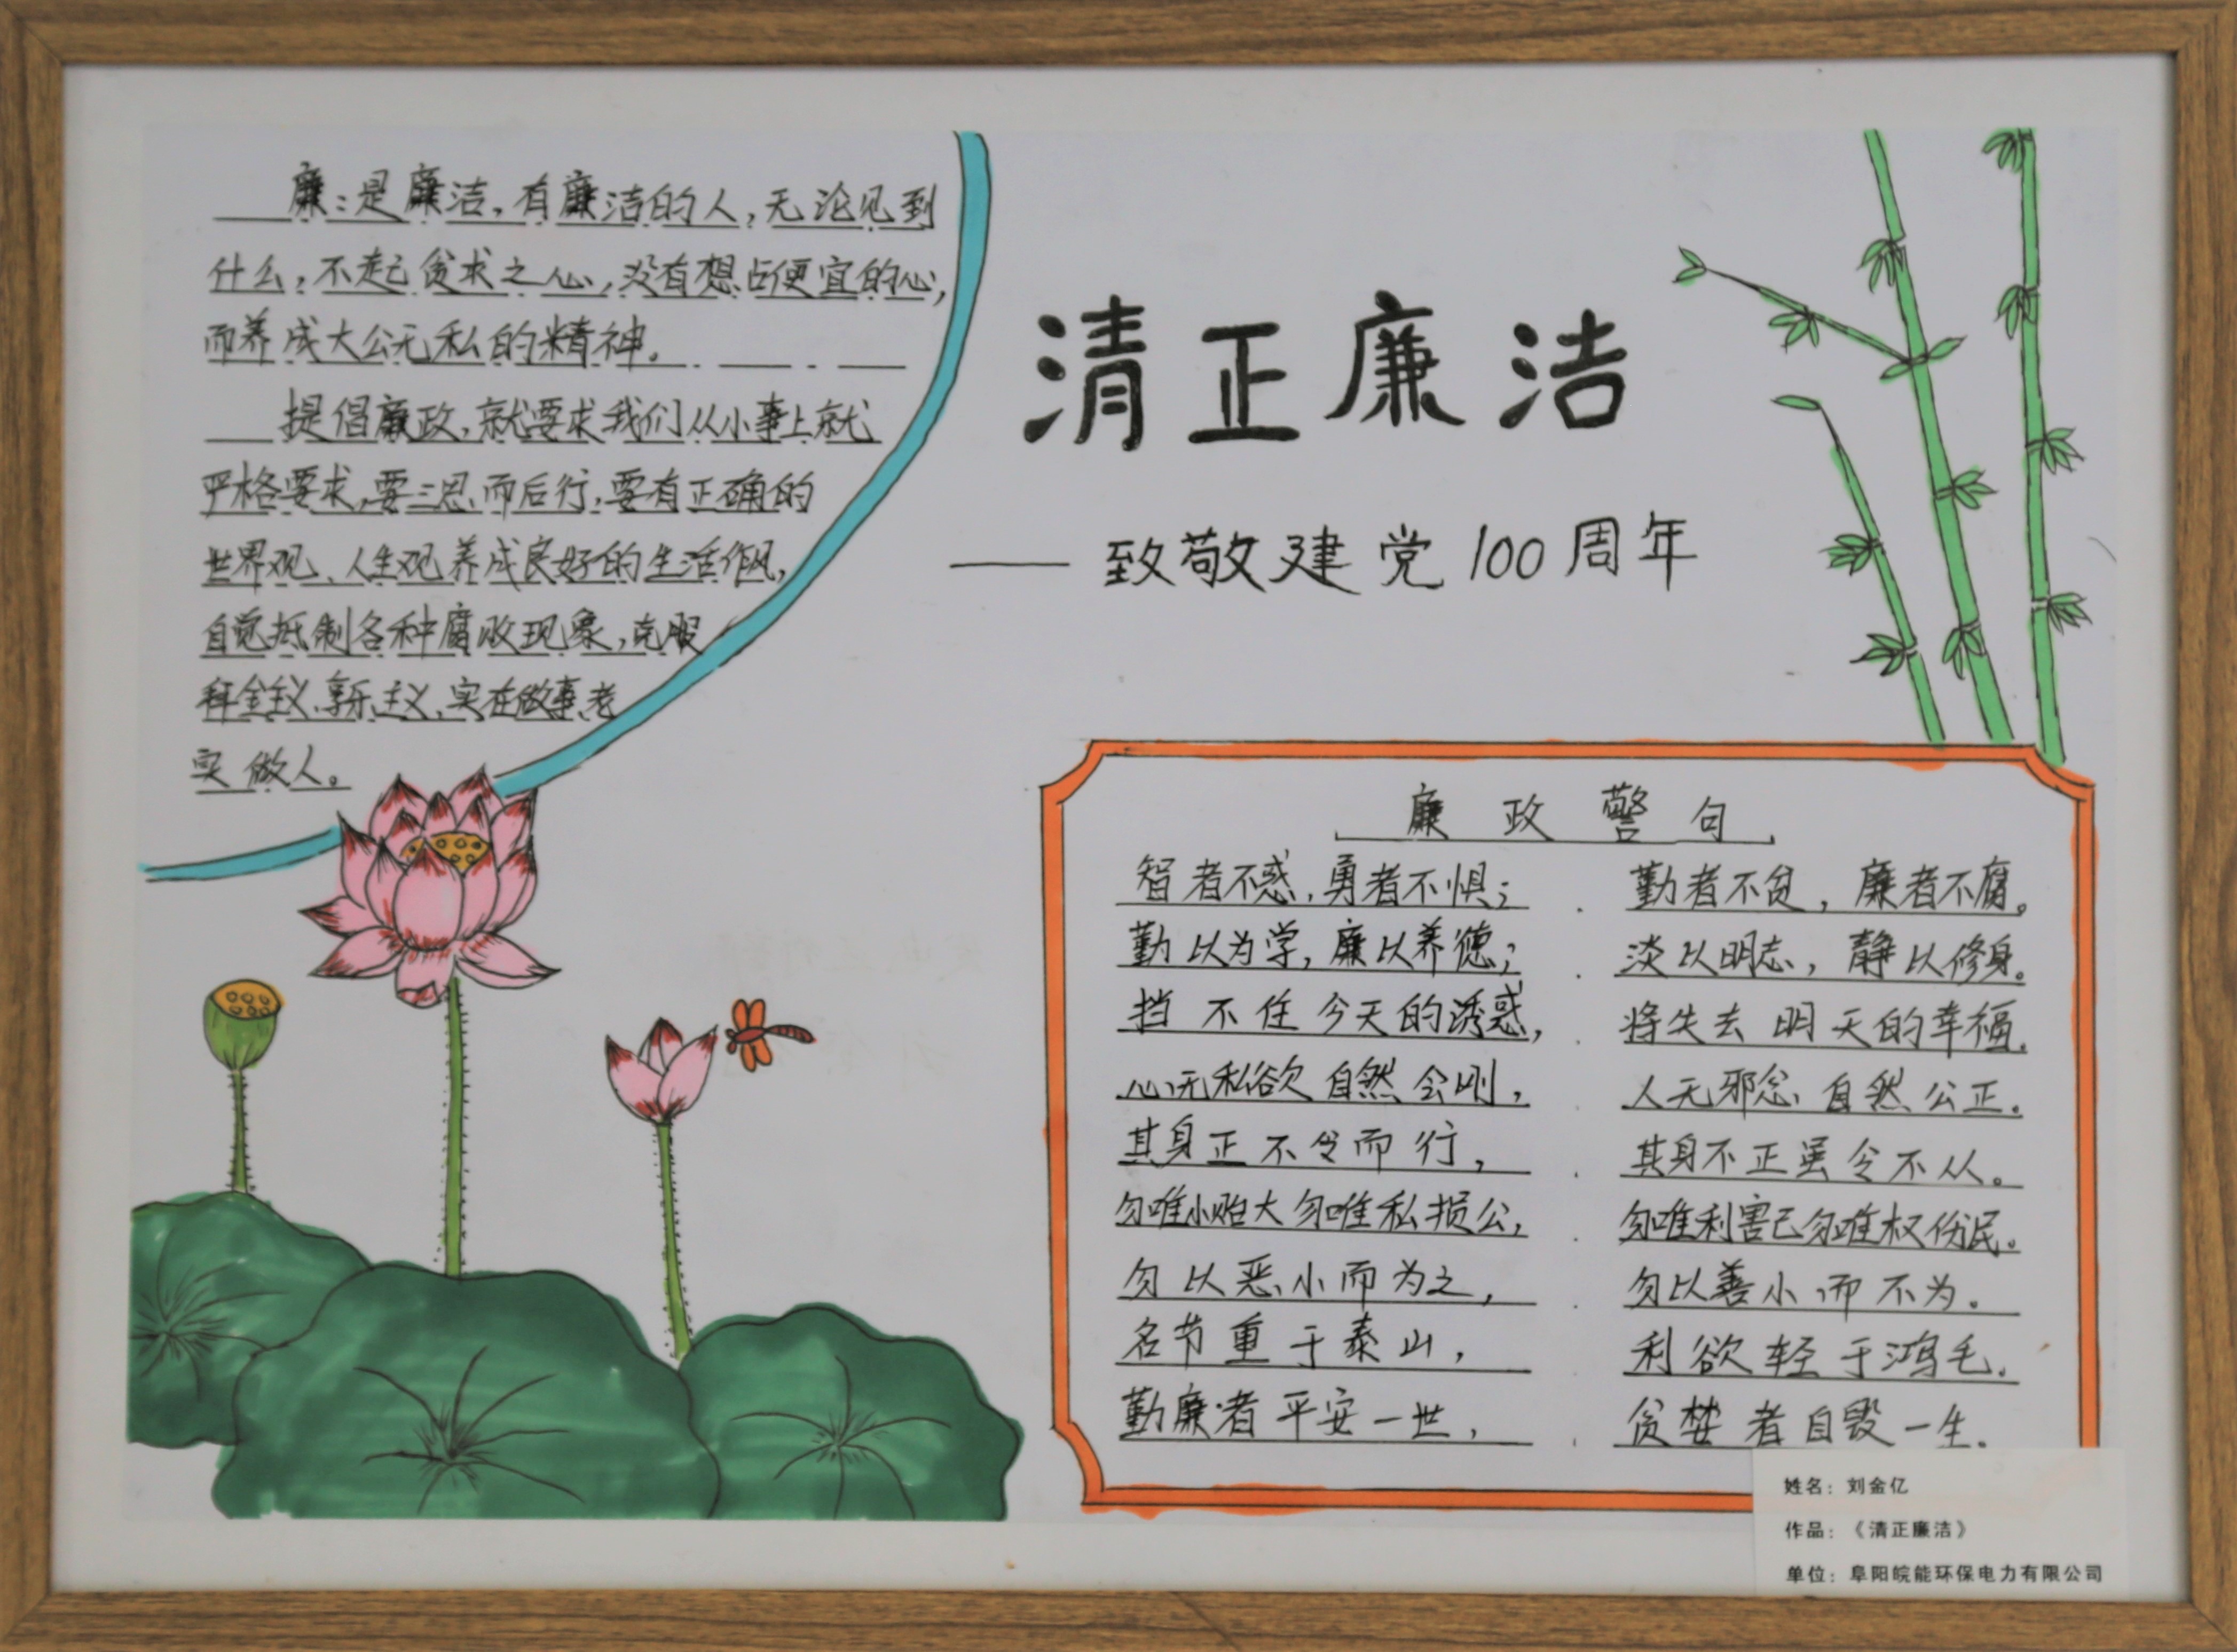 廉：是廉洁，有廉洁的人，无论见到
什么，不起贪求之心，没有想占便宜的心，
而养成大公无私的精神。
提倡廉政，就要求我们从小事上就
严格要求，要三思而后行，要有正确的
世界观、人生观养成良好的生活作风，
自觉抵制各种腐败现象，克服
拜金主义、享乐主义、实在做事老
实做人。
清正廉洁
——致敬建党100周年
廉政警句
智者不惑，勇者不惧； 勤者不贫，廉者不腐。
勤以为学，廉以养德； 淡以明志，静以修身。
挡不住今天的诱惑， 将失去明天的幸福。
心无私欲自然会刚， 人无邪念自然公正。
其身正不令而行， 其身不正虽令不从。
勿唯小贻大勿唯私损公， 勿唯利害己勿唯权伤民。
勿以恶小而为之， 勿以善小而不为。
名节重于泰山， 利欲轻于鸿毛。
勤廉者平安一世， 贪婪者自毁一生。
姓名：刘金亿
作品：《清正廉洁》
单位：阜阳皖能环保电力有限公司